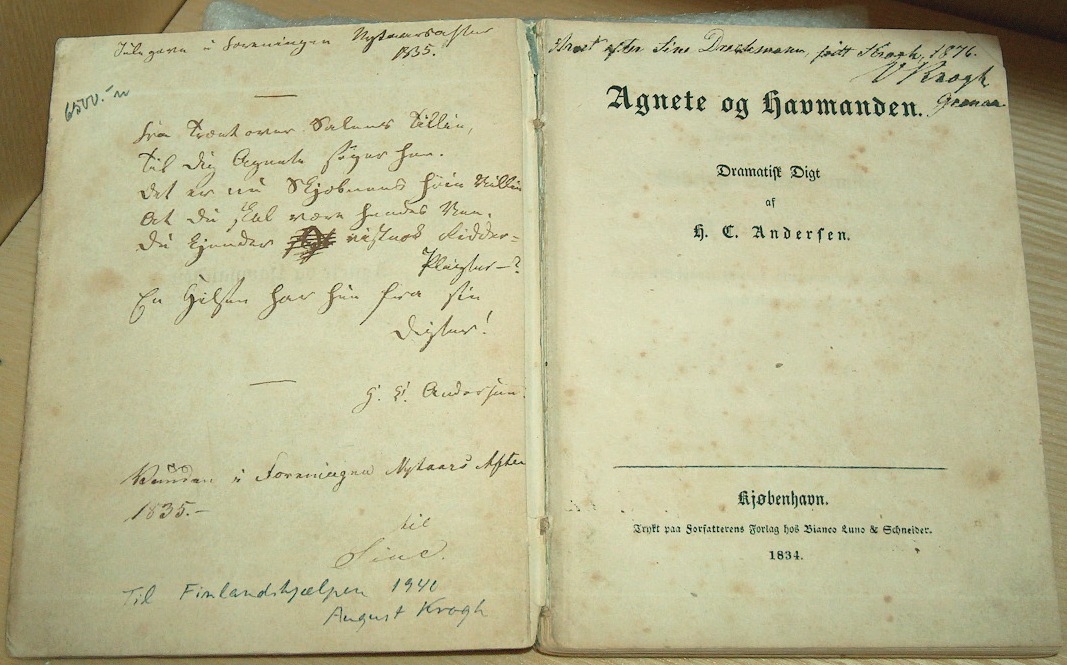 Julegave i Foreningen Nytaarsaften
1835.
6500.-
Fra Træet over Salens
til dig Agnete søger hen.
Det er nu Skjæbnens
At du skal være hendes Ven.
Du kjender vistnok Ridder-
En Hilsen har hun fra sin
Digter!
H. C. Andersen.
Vunden i Foreningen Nytaars Aften
1835.-
til
Sine.
Til Finlandshjælpen 1940
August Krogh
Arvet efter Sine Drewsen, født Krogh, 1876.
V Krogh
Grenaa
Agnete og Havmanden.
Dramatisk Digt
af
H. C. Andersen.
Kjøbenhavn.
Trykt paa Forfatterens Forlag hos Bianco Luno & Schneider.
1834.